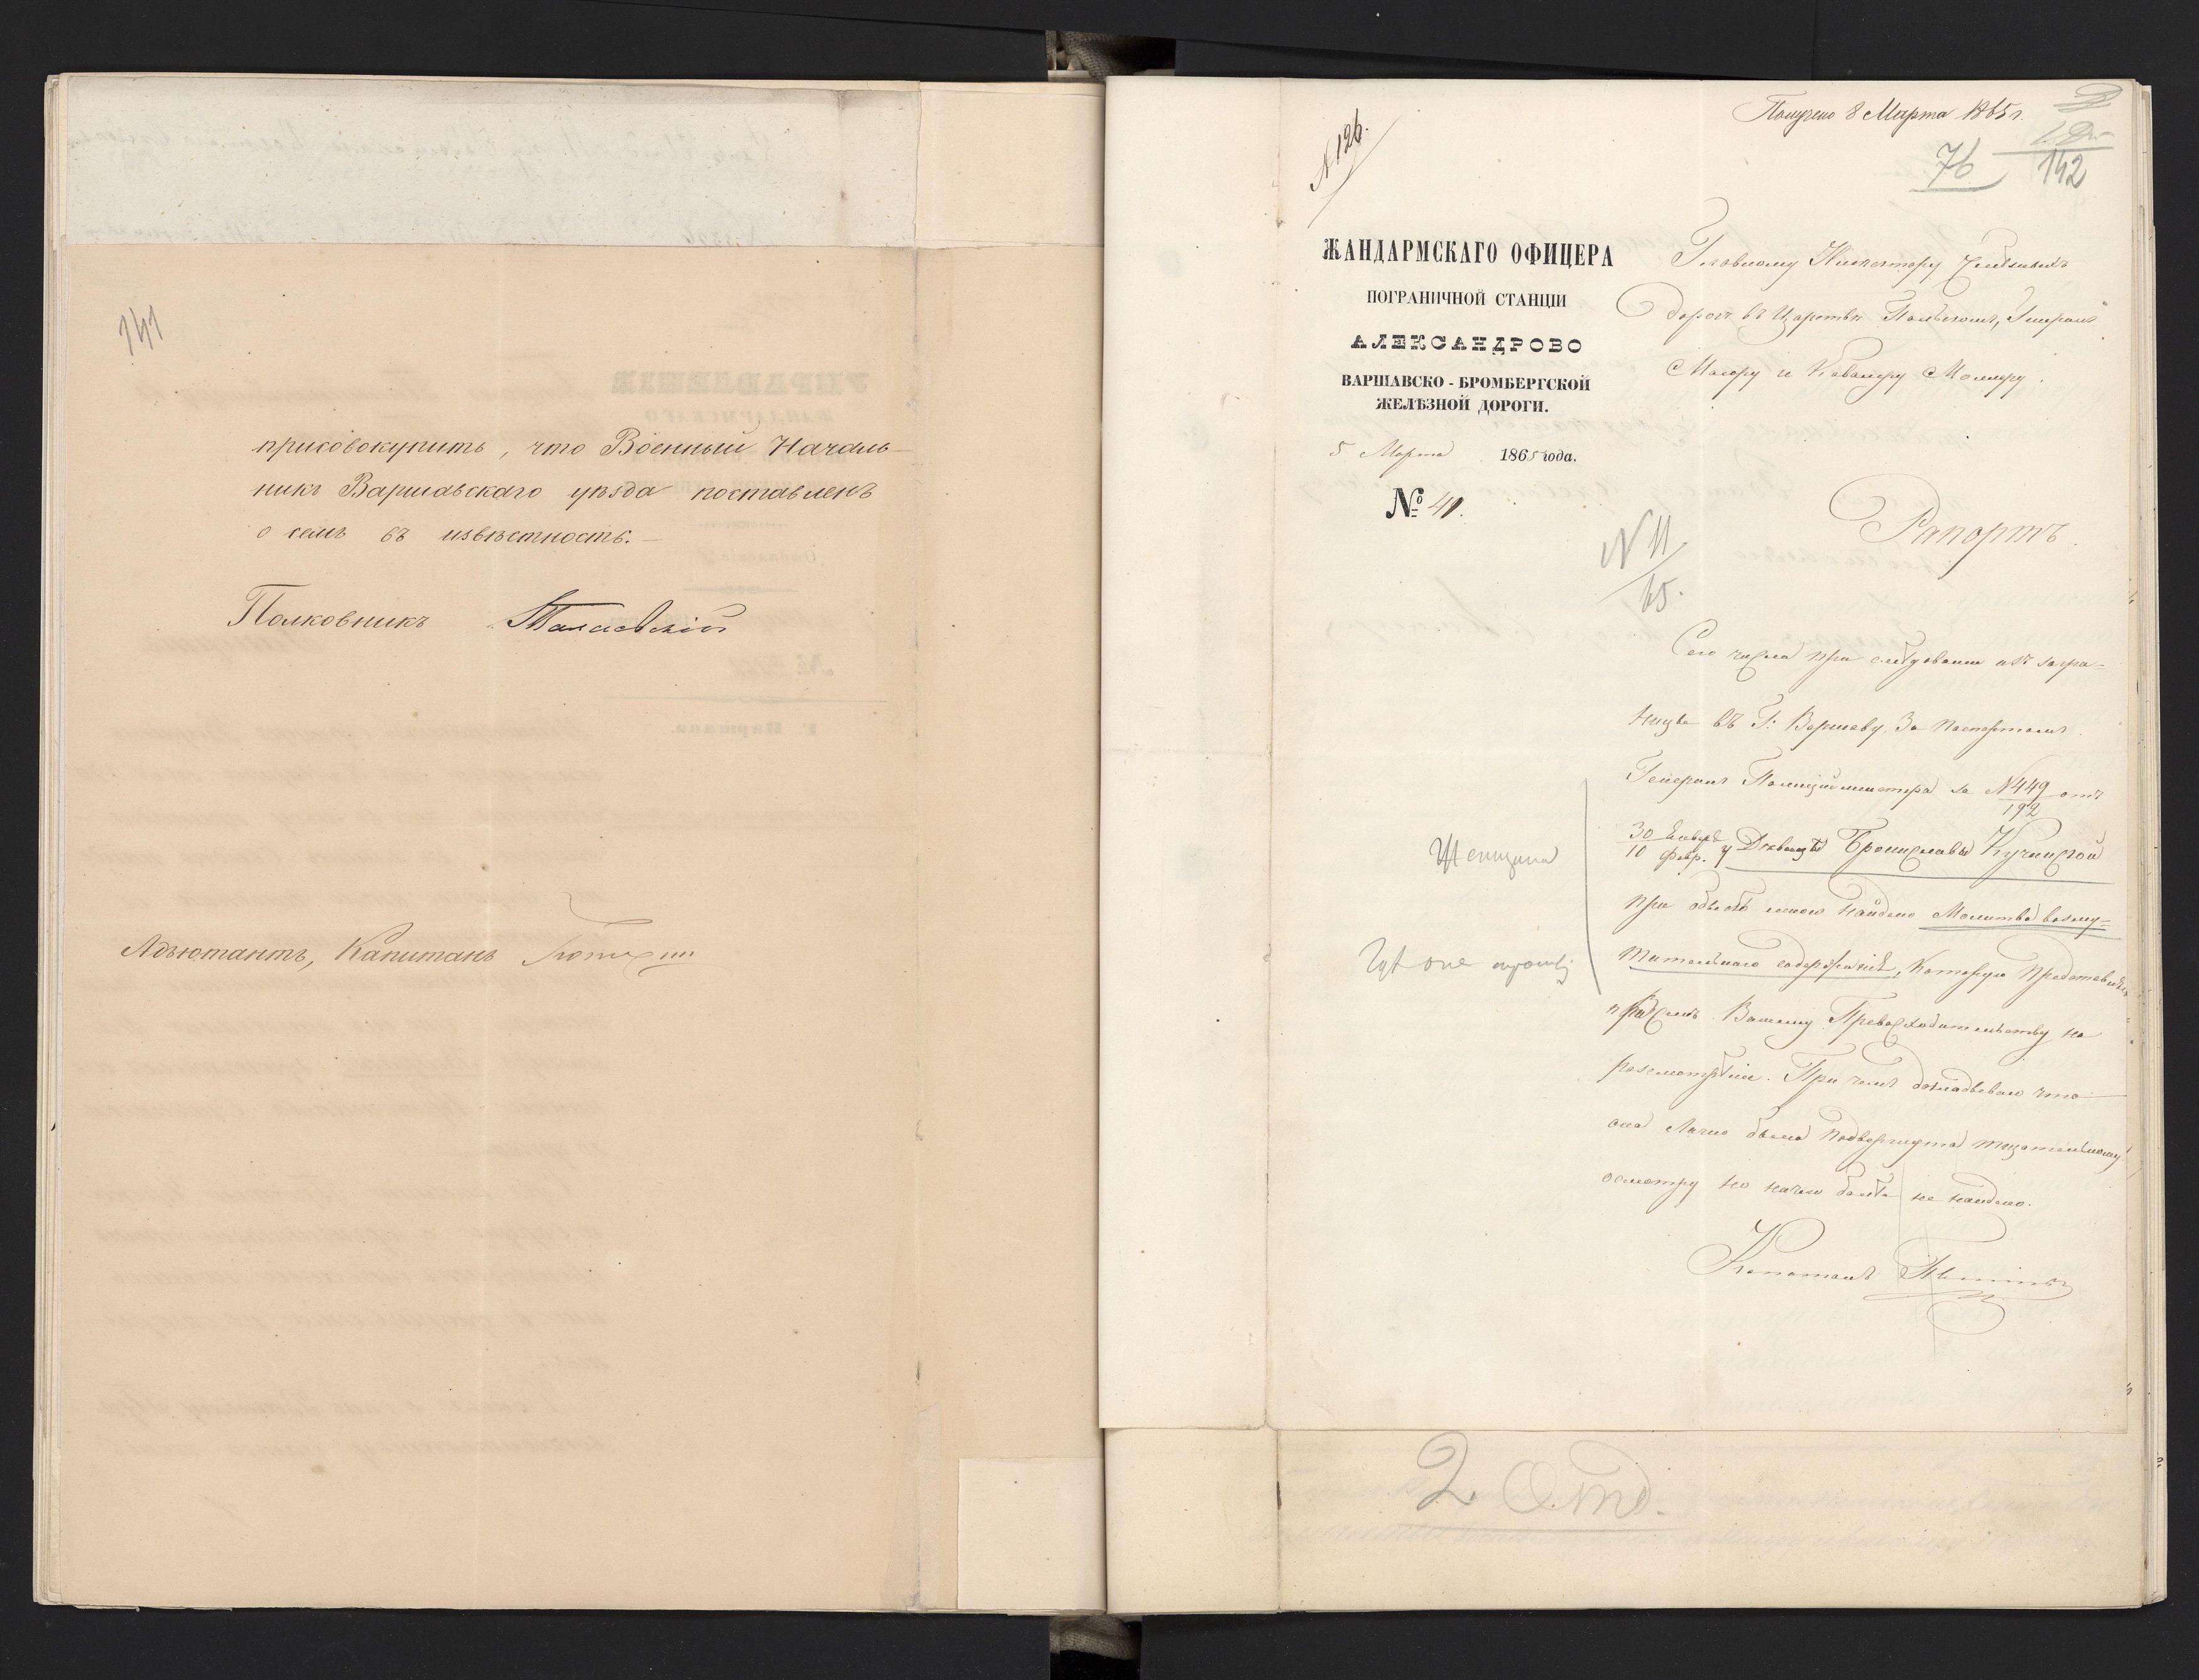 141
присовокупить, что Военный Началь-
никъ Варшавскаго уѣзда поставленъ
о семъ въ извѣстность.—
Полковникъ
Адъютантъ, Капитанъ
Получено 8 Марта 1865 г.
№ 126.
76
142
ЖАНДАРМСКАГО ОФИЦЕРА
ПОГРАНИЧНОЙ СТАНЦІИ
АЛЕКСАНДРОВО
ВАРШАВСКО-БРОМБЕРГСКОЙ
ЖЕЛѢЗНОЙ ДОРОГИ.
5 Марта 1865 года.
№ 41.
Главному Инспектору
дорогъ въ Царствѣ Польскомъ, Генералъ
Маіору и Кавалеру
Рапортъ.
N 11
65.
Сего числа при слѣдованіи изъ загра-
ницы въ Г. Варшаву, за паспортомъ
Генералъ Полиціймейстера за N 449/192 отъ
30 Января/10 Февр. у Дѣвицы Брониславы Кучинской
при обыскѣ мною найдено Молитва возму-
тительнаго содержанія, которую представляя
при семъ Вашему Превосходительству на
разсмотрѣніе. При чемъ докладываю что
она лично была подвергнута тщательному
осмотру но ничего болѣе не найдено.
Капитанъ
Женщина
Гдѣ она
2 Отд.